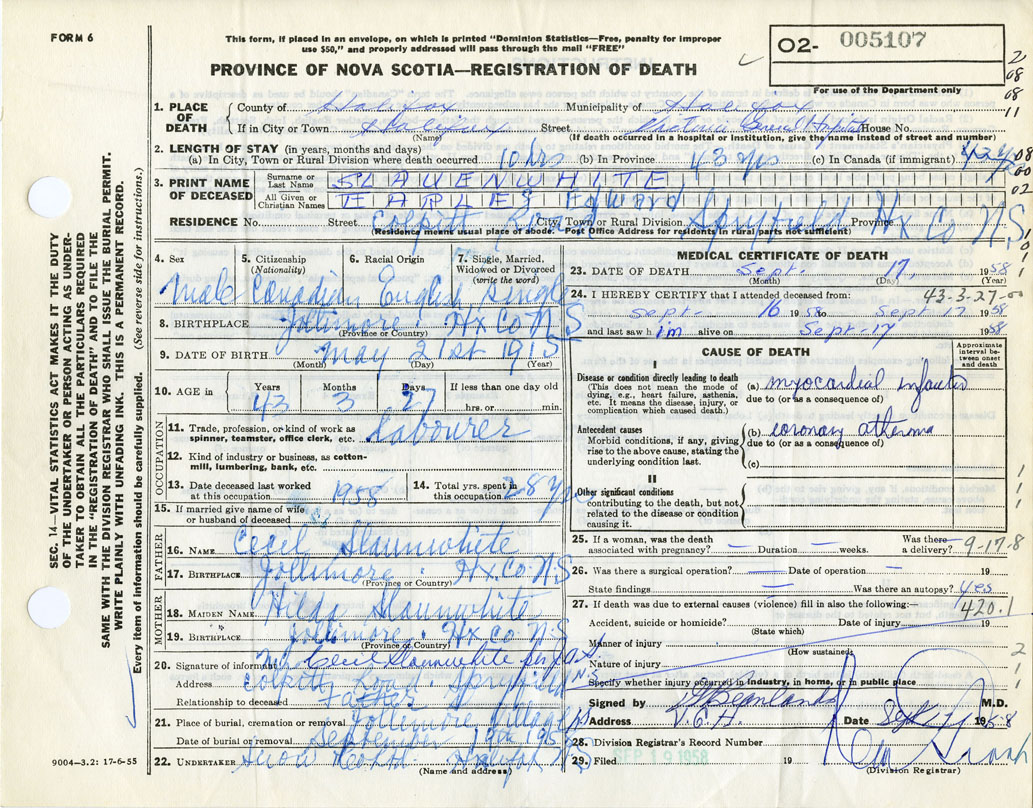 FORM 6
This form, if placed in an envelope, on which is printed "Dominion Statistics—Free, penalty for improper
use $50," and properly addressed will pass through the mail "FREE"
PROVINCE OF NOVA SCOTIA—REGISTRATION OF DEATH
O2- 005107
For use of the Department only
2
08
08
11
1. PLACE OF DEATH
County of Halifax Municipality of Halifax
If in City or Town Halifax Street Victoria General Hospital House No.
(Name) (If death occurred in a hospital or institution, give the name instead of street and number)
2. LENGTH OF STAY (in years, months and days)
(a) In City, Town or Rural Division where death occurred 10 hrs (b) In Province 43 yrs (c) In Canada (if immigrant)
08
00
02
3. PRINT NAME OF DECEASED
Surname or Last Name SLAUENWHITE
All Given or Christian Names Edward
RESIDENCE No. Street Colpitt Road City, Town or Rural Division Spryfield Province Hx Co N.S
(Residence means usual place of abode. Post Office Address for residents in rural parts not sufficient)
4. Sex 5. Citizenship (Nationality) 6. Racial Origin 7. Single, Married, Widowed or Divorced (write the word)
Male Canadian English Single
8. BIRTHPLACE Jollimore Hx Co N S
(Province or Country)
9. DATE OF BIRTH May 21st 1915
(Month) (Day) (Year)
10. AGE in Years Months Days If less than one day old
43 3 27 hrs. or min.
OCCUPATION
11. Trade, profession, or kind of work as spinner, teamster, office clerk, etc. Labourer
12. Kind of industry or business, as cotton-mill, lumbering, bank, etc.
13. Date deceased last worked at this occupation 1958 14. Total yrs. spent in this occupation 28 yrs
15. If married give name of wife or husband of deceased
FATHER
16. NAME Cecil Slaunwhite
17. BIRTHPLACE Jollimore Hx. Co N S
(Province or Country)
MOTHER
18. MAIDEN NAME Hilda Slaunwhite
19. BIRTHPLACE Jollimore Hx Co N S
(Province or Country)
20. Signature of informant Cecil Slaunwhite
Address Colpitt Road Spryfield
Relationship to deceased Father
21. Place of burial, cremation or removal Jollimore Village
Date of burial or removal September 19th 1958
22. UNDERTAKER Halifax
(Name and address)
9004—3.2: 17-6-55
MEDICAL CERTIFICATE OF DEATH
23. DATE OF DEATH Sept. 17, 1958
(Month) (Day) (Year)
24. I HEREBY CERTIFY that I attended deceased from: 43-3-27-
Sept. 16 1958 to Sept 17 1958
and last saw him alive on Sept-17 1958
CAUSE OF DEATH
Approximate interval between onset and death
I
Disease or condition directly leading to death
(This does not mean the mode of dying, e.g., heart failure, asthenia, etc. It means the disease, injury, or complication which caused death.)
(a) myocardial
due to (or as a consequence of)
Antecedent causes
Morbid conditions, if any, giving rise to the above cause, stating the underlying condition last.
(b) coronary atheroma
due to (or as a consequence of)
(c)
II
Other significant conditions
contributing to the death, but not related to the disease or condition causing it.
25. If a woman, was the death associated with pregnancy? — Duration — weeks. Was there a delivery?
9-17-8
26. Was there a surgical operation? — Date of operation — 19
State findings — Was there an autopsy? Yes
27. If death was due to external causes (violence) fill in also the following:— 420.1
Accident, suicide or homicide? Date of injury 19
(State which)
Manner of injury
(How sustained)
Nature of injury
Specify whether injury occurred in industry, in home, or in public place
Signed by Beanlands M.D.
Address V.G.H. Date Sept 17 1958
28. Division Registrar's Record Number
29. Filed SEP 19 1958 19
(Division Registrar)
SEC. 14—VITAL STATISTICS ACT MAKES IT THE DUTY
OF THE UNDERTAKER OR PERSON ACTING AS UNDER-
TAKER TO OBTAIN ALL THE PARTICULARS REQUIRED
IN THE "REGISTRATION OF DEATH" AND TO FILE THE
SAME WITH THE DIVISION REGISTRAR WHO SHALL ISSUE THE BURIAL PERMIT.
WRITE PLAINLY WITH UNFADING INK. THIS IS A PERMANENT RECORD.
Every item of information should be carefully supplied. (See reverse side for instructions.)